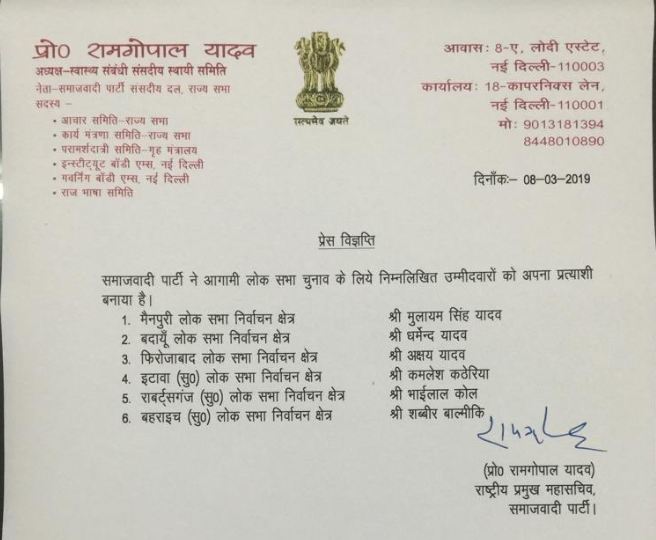 प्रो0 रामगोपाल यादव
अध्यक्ष–स्वास्थ्य संबंधी संसदीय स्थायी समिति
नेता–समाजवादी पार्टी संसदीय दल, राज्य सभा
सदस्य –
• आचार समिति–राज्य सभा
• कार्य मंत्रणा समिति–राज्य सभा
• परामर्शदात्री समिति–गृह मंत्रालय
• इन्स्टीट्यूट बॉडी एम्स, नई दिल्ली
• गवर्निंग बॉडी एम्स, नई दिल्ली
• राज भाषा समिति
सत्यमेव जयते
आवास: 8-ए, लोदी एस्टेट,
नई दिल्ली-110003
कार्यालय: 18-कापरनिक्स लेन,
नई दिल्ली-110001
मो: 9013181394
8448010890
दिनाँक:– 08–03–2019
प्रेस विज्ञप्ति
समाजवादी पार्टी ने आगामी लोक सभा चुनाव के लिये निम्नलिखित उम्मीदवारों को अपना प्रत्याशी
बनाया है।
1. मैनपुरी लोक सभा निर्वाचन क्षेत्र श्री मुलायम सिंह यादव
2. बदायूँ लोक सभा निर्वाचन क्षेत्र श्री धर्मेन्द यादव
3. फिरोजाबाद लोक सभा निर्वाचन क्षेत्र श्री अक्षय यादव
4. इटावा (सु0) लोक सभा निर्वाचन क्षेत्र श्री कमलेश कठेरिया
5. राबर्ट्सगंज (सु0) लोक सभा निर्वाचन क्षेत्र श्री भाईलाल कोल
6. बहराइच (सु0) लोक सभा निर्वाचन क्षेत्र श्री शब्बीर बाल्मीकि
(प्रो0 रामगोपाल यादव)
राष्ट्रीय प्रमुख महासचिव,
समाजवादी पार्टी।